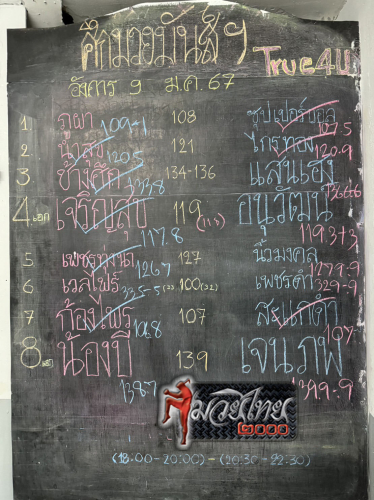 ศึกมวยมันส์ฯ
True4U
อังคาร 9 ม.ค. 67
1. ภูผา 109-1 108 ซุปเปอร์บอล 107.5
2 น้ำสุข 120.5 121 ไกรทอง 120.9
3 ช้างศึก 133.8 134-136 แสนเฮง
4. เอก เจริญสุข 117.8 119 (119) อนุวัฒน์ 119.3+3
5 127 นิวมงคล 127.9-9
6 เวลไฟร์ 100 เพชรดำ
7 ก้องไพร 106.8 107 สะแกดำ 107
8 น้องบี 138.7 139 เจนภพ 139.9-.9
มวยไทย
๒๐๐๐
(18.00-20.00)-(20.30-22.30)